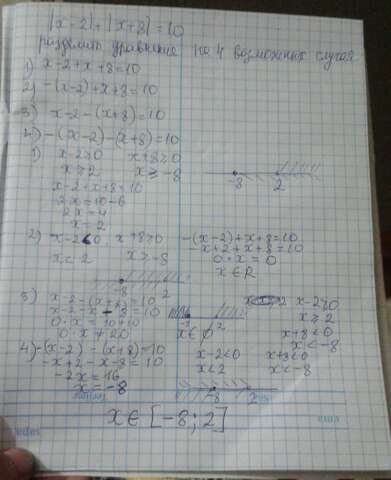 |x-2|+|x+8|=10
разделить уравнение на 4 возможных случая
1) x-2+x+8=10
2) -(x-2)+x+8=10
3) x-2-(x+8)=10
4) -(x-2)-(x+8)=10
1) x-2≥0 x+8≥0
x≥2 x≥-8
-8 2
x-2+x+8=10
2x=10-6
2x=4
x=2
2) x-2<0 x+8≥0 -(x-2)+x+8=10
x<2 x≥-8 -x+2+x+8=10
0·x=0
x∈R
-8 2
3) x-2-(x+8)=10 x-2≥0
x-2-x-8=10 x≥2
0·x=10+10 x∈∅ x+8<0
0·x≠20 x<-8
-8 2
4) -(x-2)-(x+8)=10 x-2<0 x+8<0
-x+2-x-8=10 x<2 x<-8
-2x=16
x=-8
-8 2
x∈[-8;2]